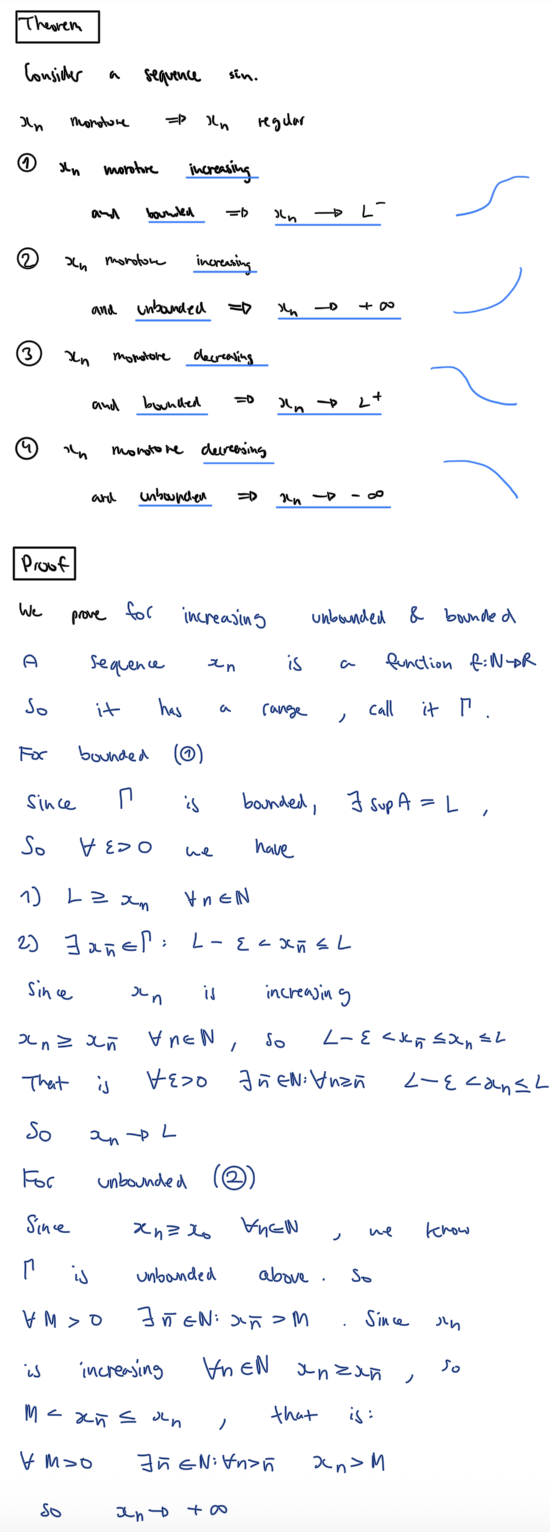 Theorem
Consider a sequence s:n.
xₙ monotone ⇒ xₙ regular
① xₙ monotone increasing
and bounded ⇒ xₙ → L⁻
② xₙ monotone increasing
and unbounded ⇒ xₙ → +∞
③ xₙ monotone decreasing
and bounded ⇒ xₙ → L⁺
④ xₙ monotone decreasing
and unbounded ⇒ xₙ → -∞
Proof
We prove for increasing unbounded & bounded
A sequence xₙ is a function f:ℕ→ℝ
So it has a range, call it Γ.
For bounded (①)
Since Γ is bounded, ∃ sup A = L,
So ∀ ε>0 we have
1) L ≥ xₙ ∀n∈ℕ
2) ∃ x_n̄ ∈ Γ: L - ε < x_n̄ ≤ L
Since xₙ is increasing
xₙ ≥ x_n̄ ∀n∈ℕ, so L-ε < x_n̄ ≤ xₙ ≤ L
That is ∀ε>0 ∃n̄∈ℕ:∀n≥n̄ L-ε < xₙ ≤ L
So xₙ → L
For unbounded (②)
Since xₙ ≥ x₀ ∀n∈ℕ, we know
Γ is unbounded above. So
∀ M > 0 ∃ n̄ ∈ℕ: x_n̄ > M. Since xₙ
is increasing ∀n∈ℕ xₙ ≥ x_n̄, so
M < x_n̄ ≤ xₙ, that is:
∀ M>0 ∃n̄∈ℕ:∀n>n̄ xₙ > M
So xₙ → +∞